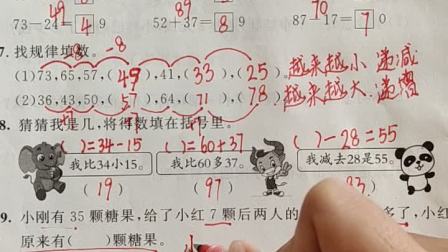 49 89 70
73-24=4 9 52+37=8 9 87 17=7 0
7. 找规律填数。 -8 -8
(1)73,65,57,(49),41,(33),(25)。越来越小 递减
(2)36,43,50,(57),64,(71),(78)。越来越大 递增
8. 猜猜我是几，将得数填在括号里。
( )=34-15 ( )=60+37 ( )-28=55
我比34小15。 我比60多37。 我减去28是55。
(19) (97) 83)
9. 小刚有 35 颗糖果，给了小红 7 颗后两人的 多了，小红
原来有( )颗糖果。 小